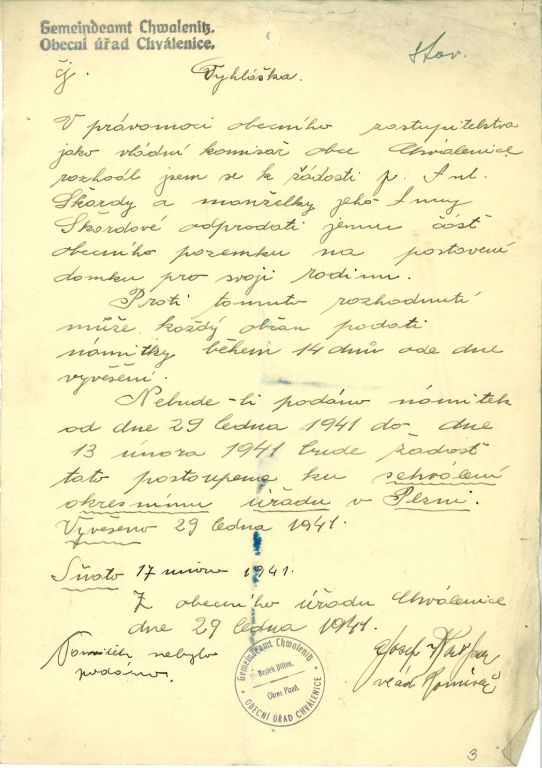 Gemeindeamt Chwalenitz.
Obecní úřad Chválenice.
čj.
Vyhláška.
V právomoci obecního zastupitelstva
jako vládní komisař obce Chválenice
rozhodl jsem se k žádosti p. Ant.
Škordy a manželky jeho Anny
Škordové odprodati jemu část
obecního pozemku na postavení
domku pro svoji rodinu.
Proti tomuto rozhodnutí
může každý občan podati
námitky během 14 dnů ode dne
vyvěšení.
Nebude-li podáno námitek
od dne 29 ledna 1941 do dne
13 února 1941 bude žádost
tato postoupena ku schválení
okresnímu úřadu v Plzni.
Vyvěseno 29 ledna 1941.
Sňato 17 února 1941.
Z obecního úřadu Chválenice
dne 29 ledna 1941.
Námitek nebylo
podáno.
Josef
vlád komisař
Gemeindeamt Chwalenitz
Bezirk Pilsen.
Okres Plzeň.
OBECNÍ ÚŘAD CHVÁLENICE
3